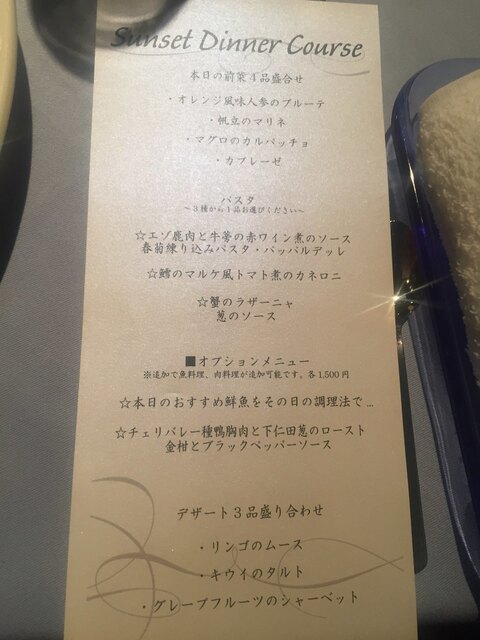 Sunset Dinner Course
本日の前菜4品盛合せ
・オレンジ風味人参のブルーテ
・帆立のマリネ
・マグロのカルパッチョ
・カプレーゼ
パスタ
～3種から1品お選びください～
☆エゾ鹿肉と牛蒡の赤ワイン煮のソース
春菊練り込みパスタ・パッパルデッレ
☆鱈のマルケ風トマト煮のカネロニ
☆蟹のラザーニャ
葱のソース
■オプションメニュー
※追加で魚料理、肉料理が追加可能です。各1,500円
☆本日のおすすめ鮮魚をその日の調理法で...
☆チェリバレー種鴨胸肉と下仁田葱のロースト
金柑とブラックペッパーソース
デザート3品盛り合わせ
・リンゴのムース
・キウイのタルト
・グレープフルーツのシャーベット